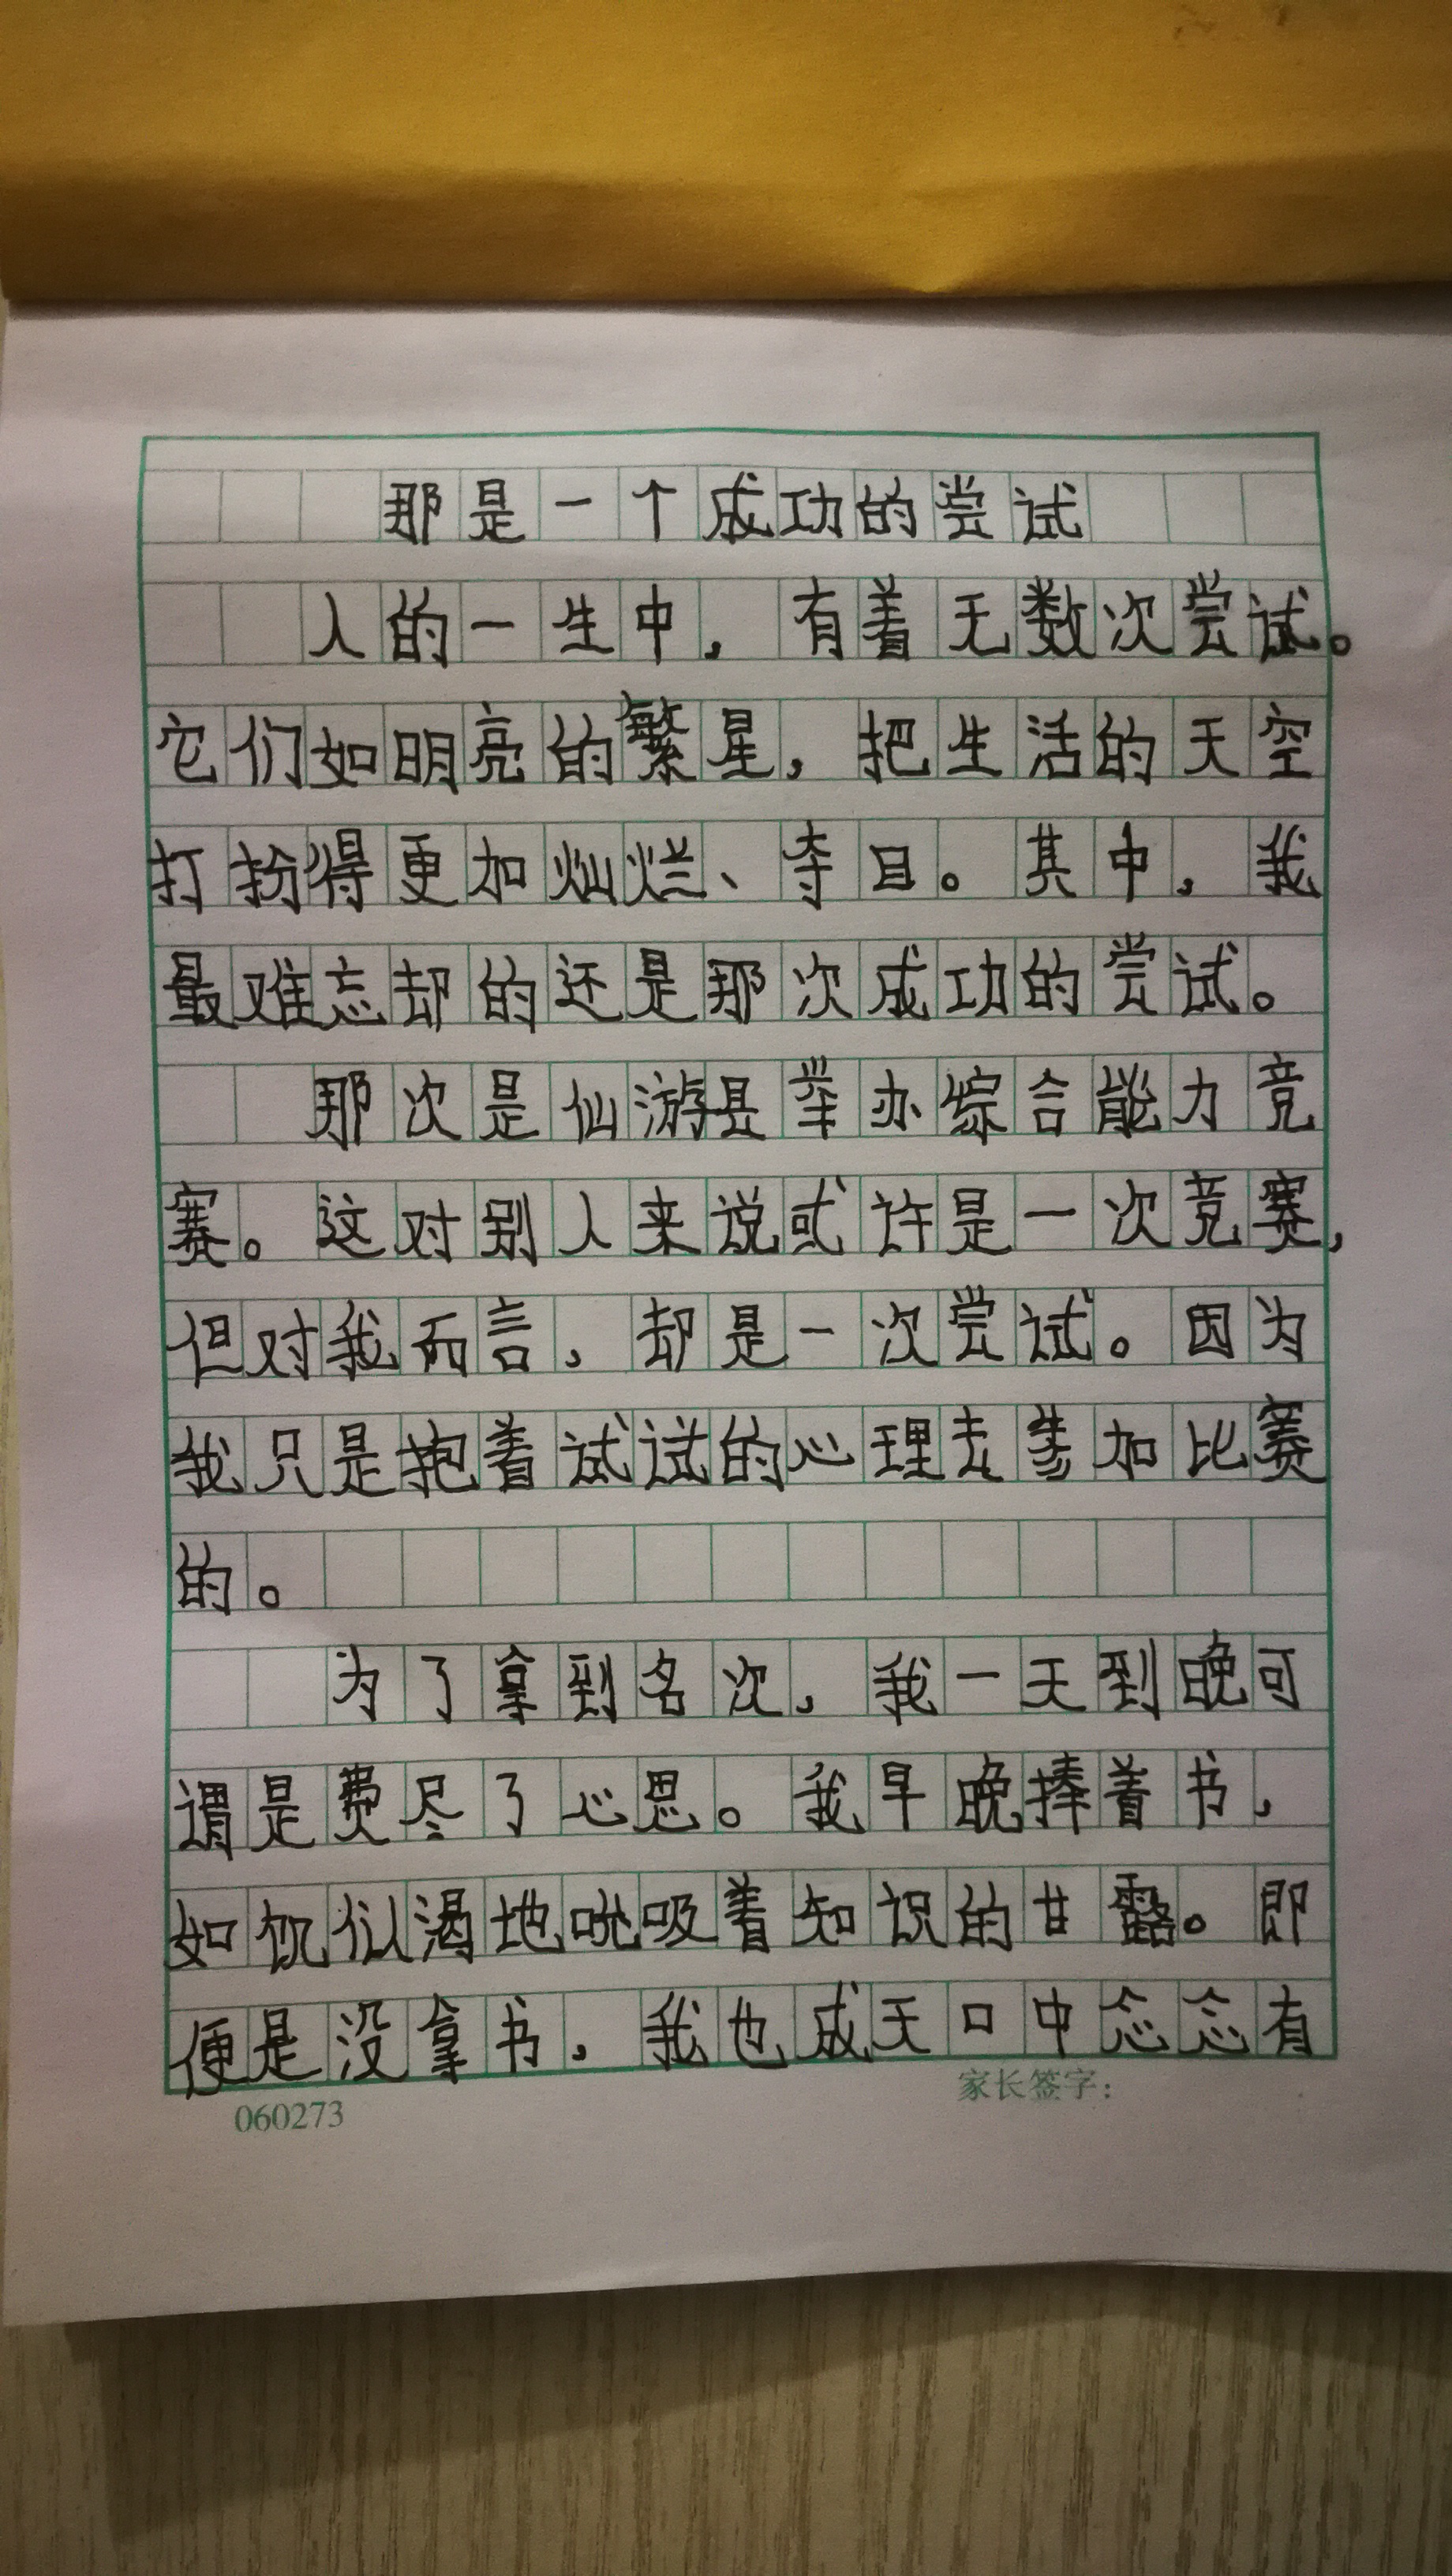 那是一个成功的尝试
人的一生中，有着无数次尝试。
它们如明亮的繁星，把生活的天空
打扮得更加灿烂、夺目。其中，我
最难忘却的还是那次成功的尝试。
那次是仙游县举办综合能力竞
赛。这对别人来说或许是一次竞赛，
但对我而言，却是一次尝试。因为
我只是抱着试试的心理去参加比赛
的。
为了拿到名次，我一天到晚可
谓是费尽了心思。我早晚捧着书，
如饥似渴地吮吸着知识的甘露。即
便是没拿书，我也成天口中念念有
060273
家长签字：